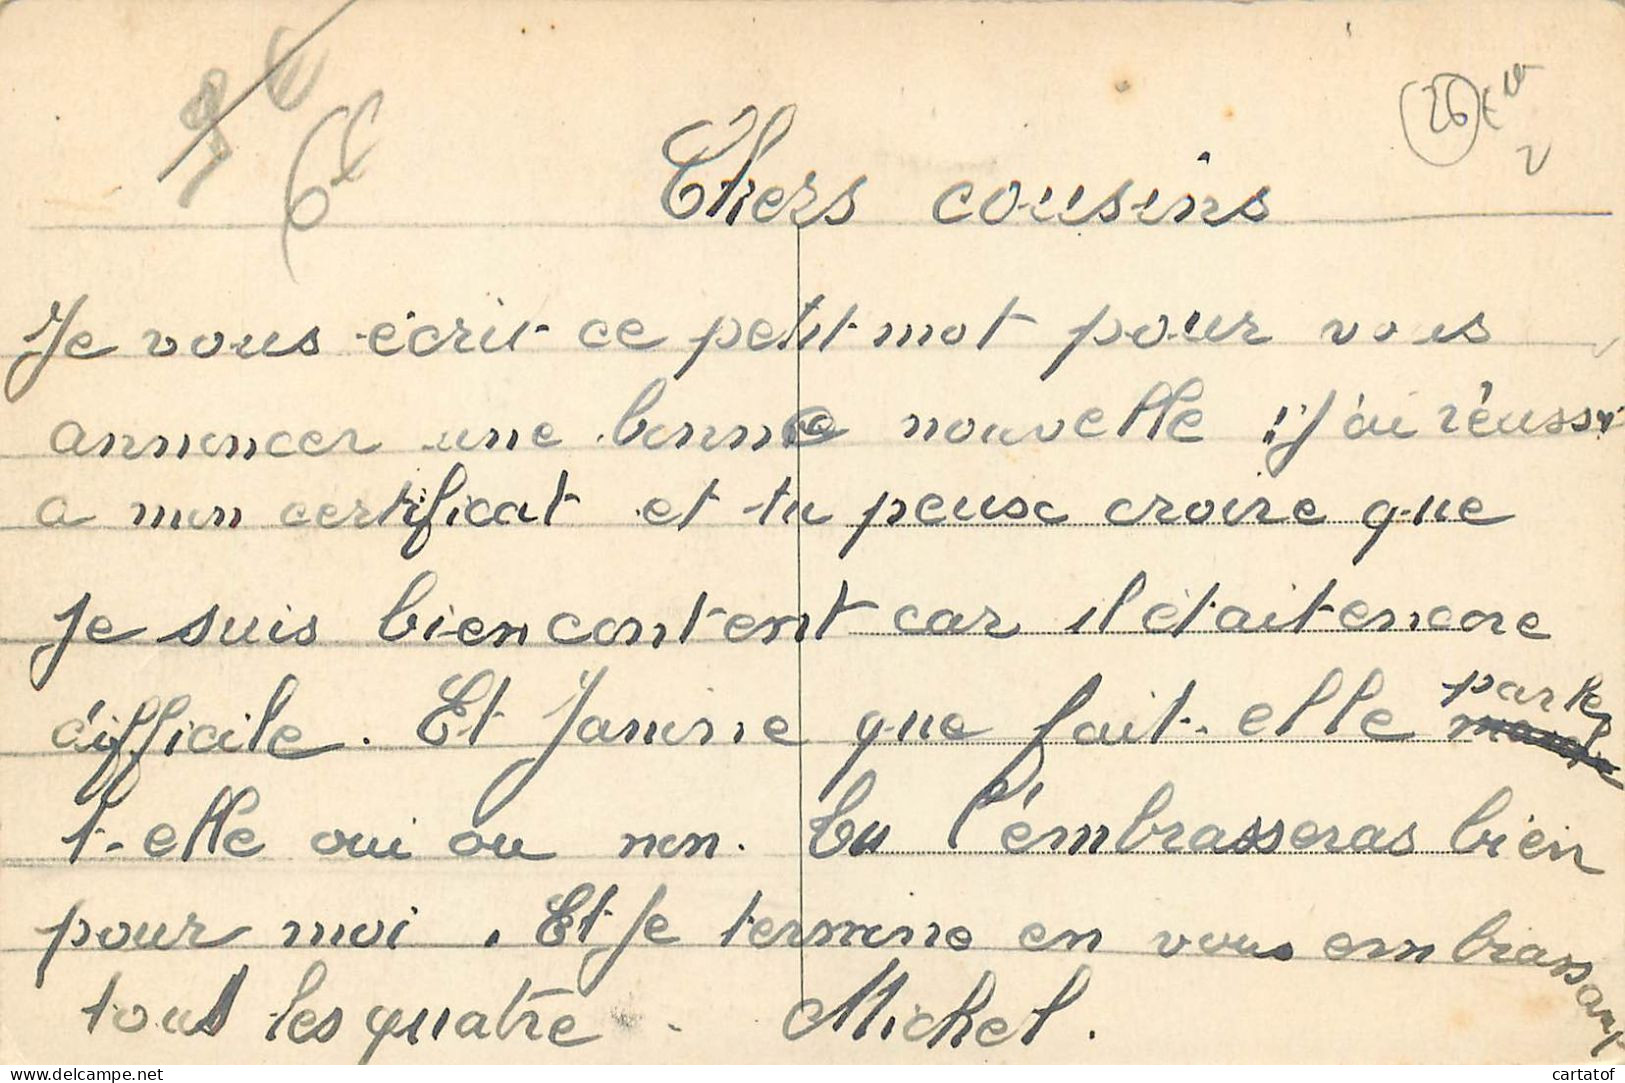 26
Chers cousins
Je vous écrit ce petit mot pour vous
annoncer une bonne nouvelle : J'ai réussi
a mon certificat et tu peux croire que
je suis bien content car il était encore
difficile. Et Janine que fait-elle parle
t-elle oui ou non. Tu l'embrasseras bien
pour moi. Et je termine en vous embrassant
tous les quatre. Michel.
www.cartatoo.com
cartatof